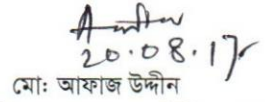 20.08.17
মো: আফাজ উদ্দীন